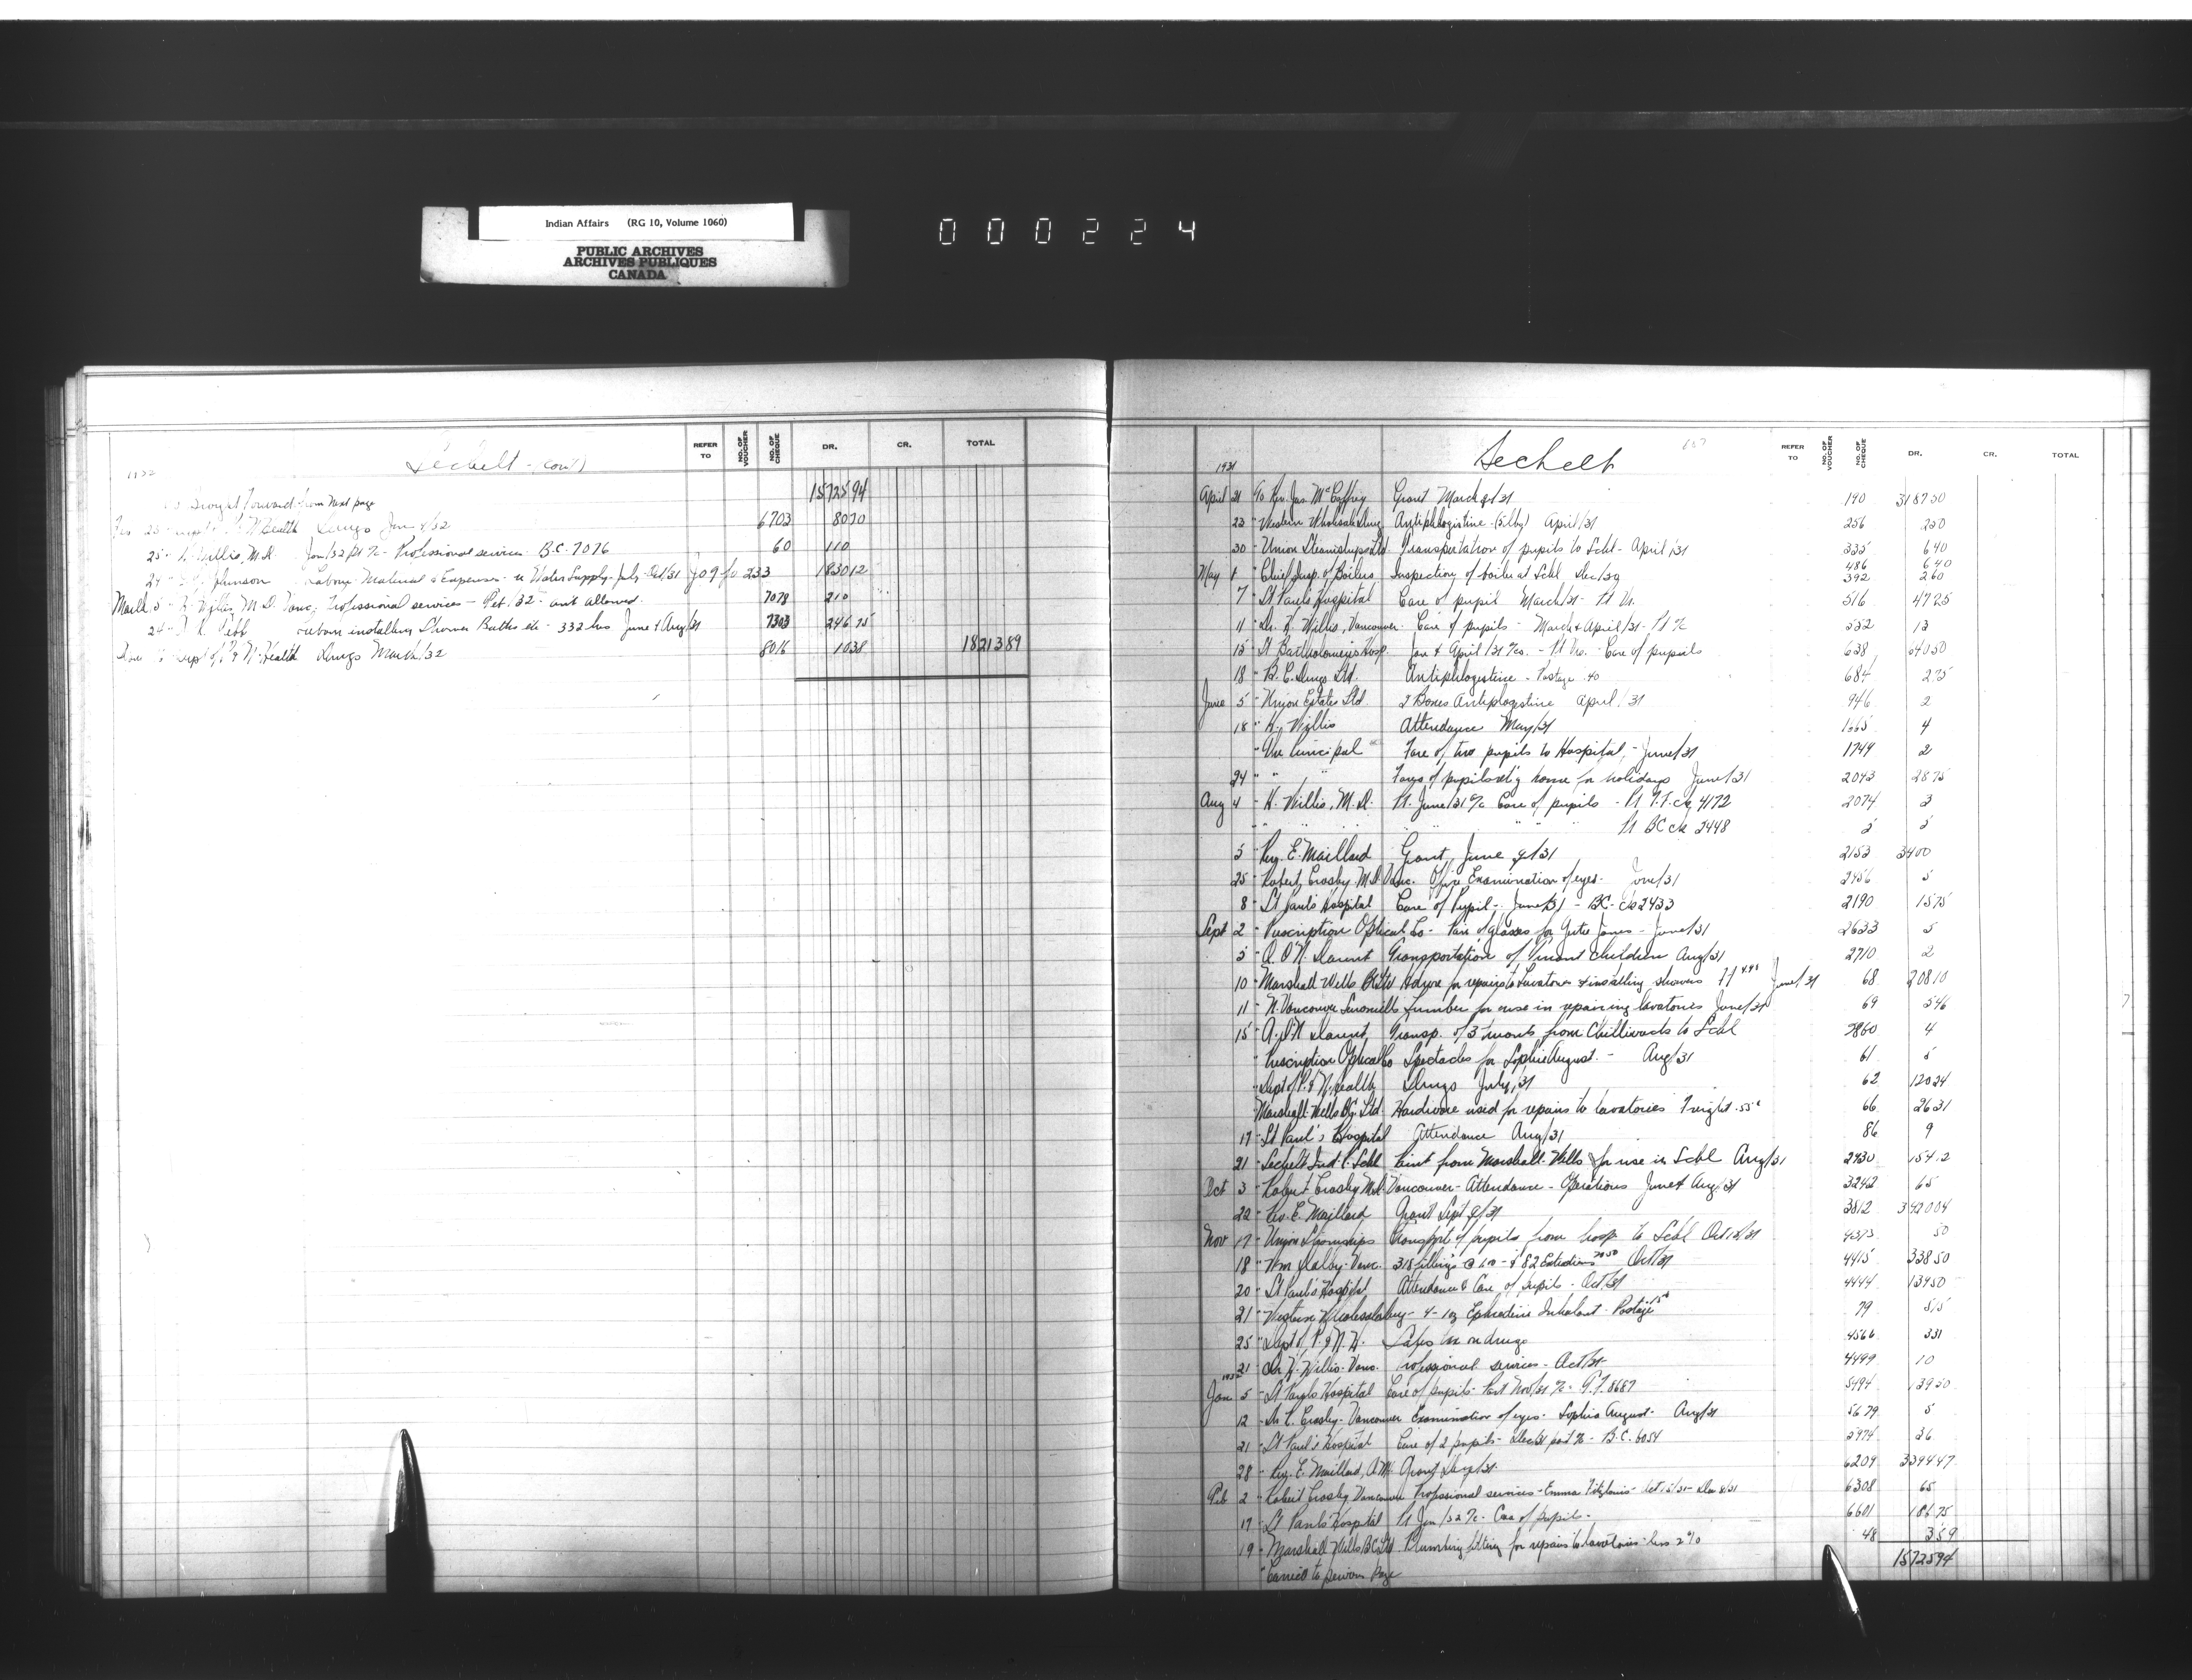 Indian Affairs (RG 10, Volume 1060)
PUBLIC ARCHIVES
ARCHIVES PUBLIQUES
CANADA
000224
Sechelt - Cont'd
REFER TO
NO. OF VOUCHER
NO. OF CHEQUE
DR.
CR.
TOTAL
Forward from Next page 15725 94
23 Health Drugs 6703 80 70
25 Willis, M.D. Professional services B.C. 7076 60 1 10
Johnson Labour Material & Expenses re Water Supply July Oct/31 233 1830 12
5 Willis M.D. Vanc. Professional services - amt allowed 7078 2 10
24 Labour installing Shower Baths etc - 332 hrs June & Aug/31 7303 246 75
Dept of P & N Health Drugs March/32 8016 10 38 18213 89
Sechelt
107
REFER TO
NO. OF VOUCHER
NO. OF CHEQUE
DR.
CR.
TOTAL
1931
April 21 To Rev. Jas. McCaffrey Grant March q/31 190 3187 50
23 " Western Wholesale Drug Antiphlogistine (5 lbs) April/31 256 2 50
30 " Union Steamships Ltd Transportation of pupils to Schl - April/31 335 6 40
486 6 40
May 1 " Chief Insp. of Boilers Inspection of boiler at Schl Dec/30 392 2 60
7 " St Paul's Hospital Care of pupil March/31 - 516 47 25
11 " Dr. H. Willis, Vancouver. Care of pupils - March & April/31 - 532 13
15 " St Bartholomew's Hosp. Jan & April/31 - Care of pupils 638 640 50
18 " B.C. Drugs Ltd. Antiphlogistine - Postage .40 684 2 75
June 5 " Union Estates Ltd 2 Boxes Antiphlogistine April/31 946 2
18 " H. Willis Attendance May/31 1665 4
" The Principal Fare of two pupils to Hospital - June/31 1749 2
24 " " Fares of pupils ret'g home for holidays June/31 2043 28 75
Aug 4 " H. Willis, M.D. Pt. June/31 a/c Care of pupils - Pt T.F. ck 4172 2074 3
" " " " Pt BC ck 2448 5 5
5 " Rev. E. Maillard Grant, June q/31 2153 3400
25 " Robert Crosby M.D. Vanc. Office Examination of eyes - June/31 2456 5
8 " St Paul's Hospital Care of Pupil - June/31 - BC - ck 2433 2190 15 75
Sept 2 " Prescription Optical Co - Pair of glasses for James - June/31 2633 5
5 " A. O'N. Daunt Transportation of Truant Children Aug/31 2710 2
10 " Marshall Wells BC Ltd Hdwre for repairs to Lavatories & installing showers June/31 68 208 10
11 " N. Vancouver Sawmills Lumber for use in repairing lavatories June/31 69 5 46
15 " A. O'N Daunt, Transp. of 3 truants from Chilliwack to Schl 2860 4
" Prescription Optical Co Spectacles for Sophie August - Aug/31 61 5
" Dept of P. & N. Health Drugs July/31 62 120 24
" Marshall-Wells BC. Ltd. Hardware used for repairs to lavatories Freight .55 66 26 31
17 " St Paul's Hospital Attendance Aug/31 86 9
21 " Sechelt Ind. R. Schl Paint from Marshall-Wells for use in Schl Aug/31 2930 154 12
Oct 3 " Robert Crosby M.D. Vancouver - Attendance - Operations June & Aug/31 3242 65
22 " Rev. E. Maillard Grant Sept q/31 3812 3420 04
Nov 17 " Union Steamships Transport of pupils from hosp to Schl Oct 4373 50
18 " Wm Dalby - Vanc. 318 fillings @ 1.00 - & 82 Extractions Oct/31 4415 338 50
20 " St Paul's Hospital Attendance & Care of pupils - Oct/31 4444 134 50
21 " Western Wholesale Drug - 4 - 1oz Ephedrine Inhalant - Postage 79 5 15
25 " Dept of P. & N. H. Sales tax on drugs 4566 3 31
21 " Dr. H. Willis - Vanc. Professional services - Oct/31 4499 10
1932
Jan 5 " St Paul's Hospital Care of pupils - Part Nov/31 a/c - T.F. 8687 5494 139 50
12 " Dr R. Crosby - Vancouver Examination of eyes - Sophia August - Aug/31 5679 5
21 " St Paul's Hospital Care of 2 pupils - Dec/31 part a/c - B.C. 6054 5974 26
28 " Rev. E. Maillard, O.M.I. Grant Dec q/31 6209 3394 47
Feb 2 " Robert Crosby Vancouver Professional services - Emma 6308 65
17 " St Paul's Hospital Pt Jan/32 a/c - Care of pupils - 6601 186 75
19 " Marshall Wells BC Ltd Plumbing fitting for repairs to lavatories less 2% 48 3 59
" Carried to previous Page 15725 94